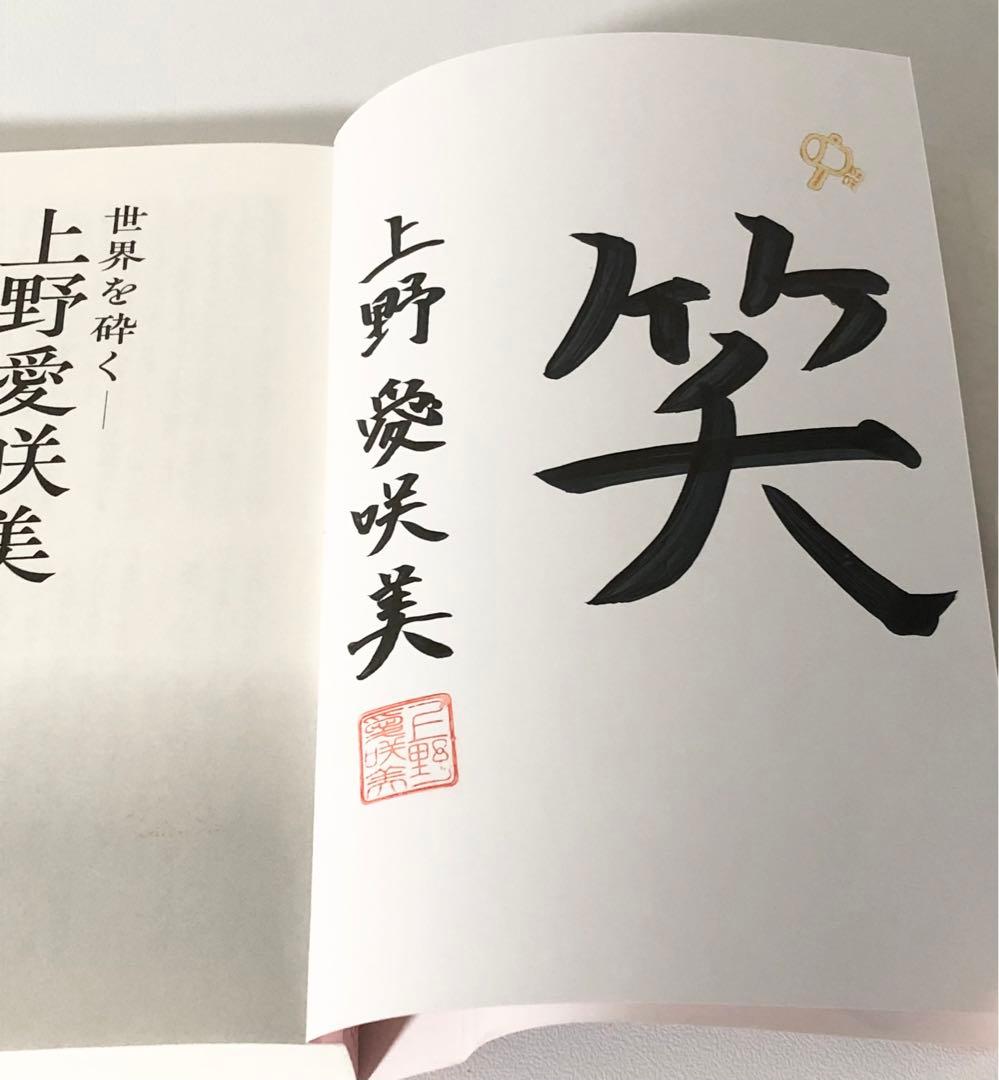 笑
上野愛咲美
上野
愛咲美
世界を砕く—
上野愛咲美